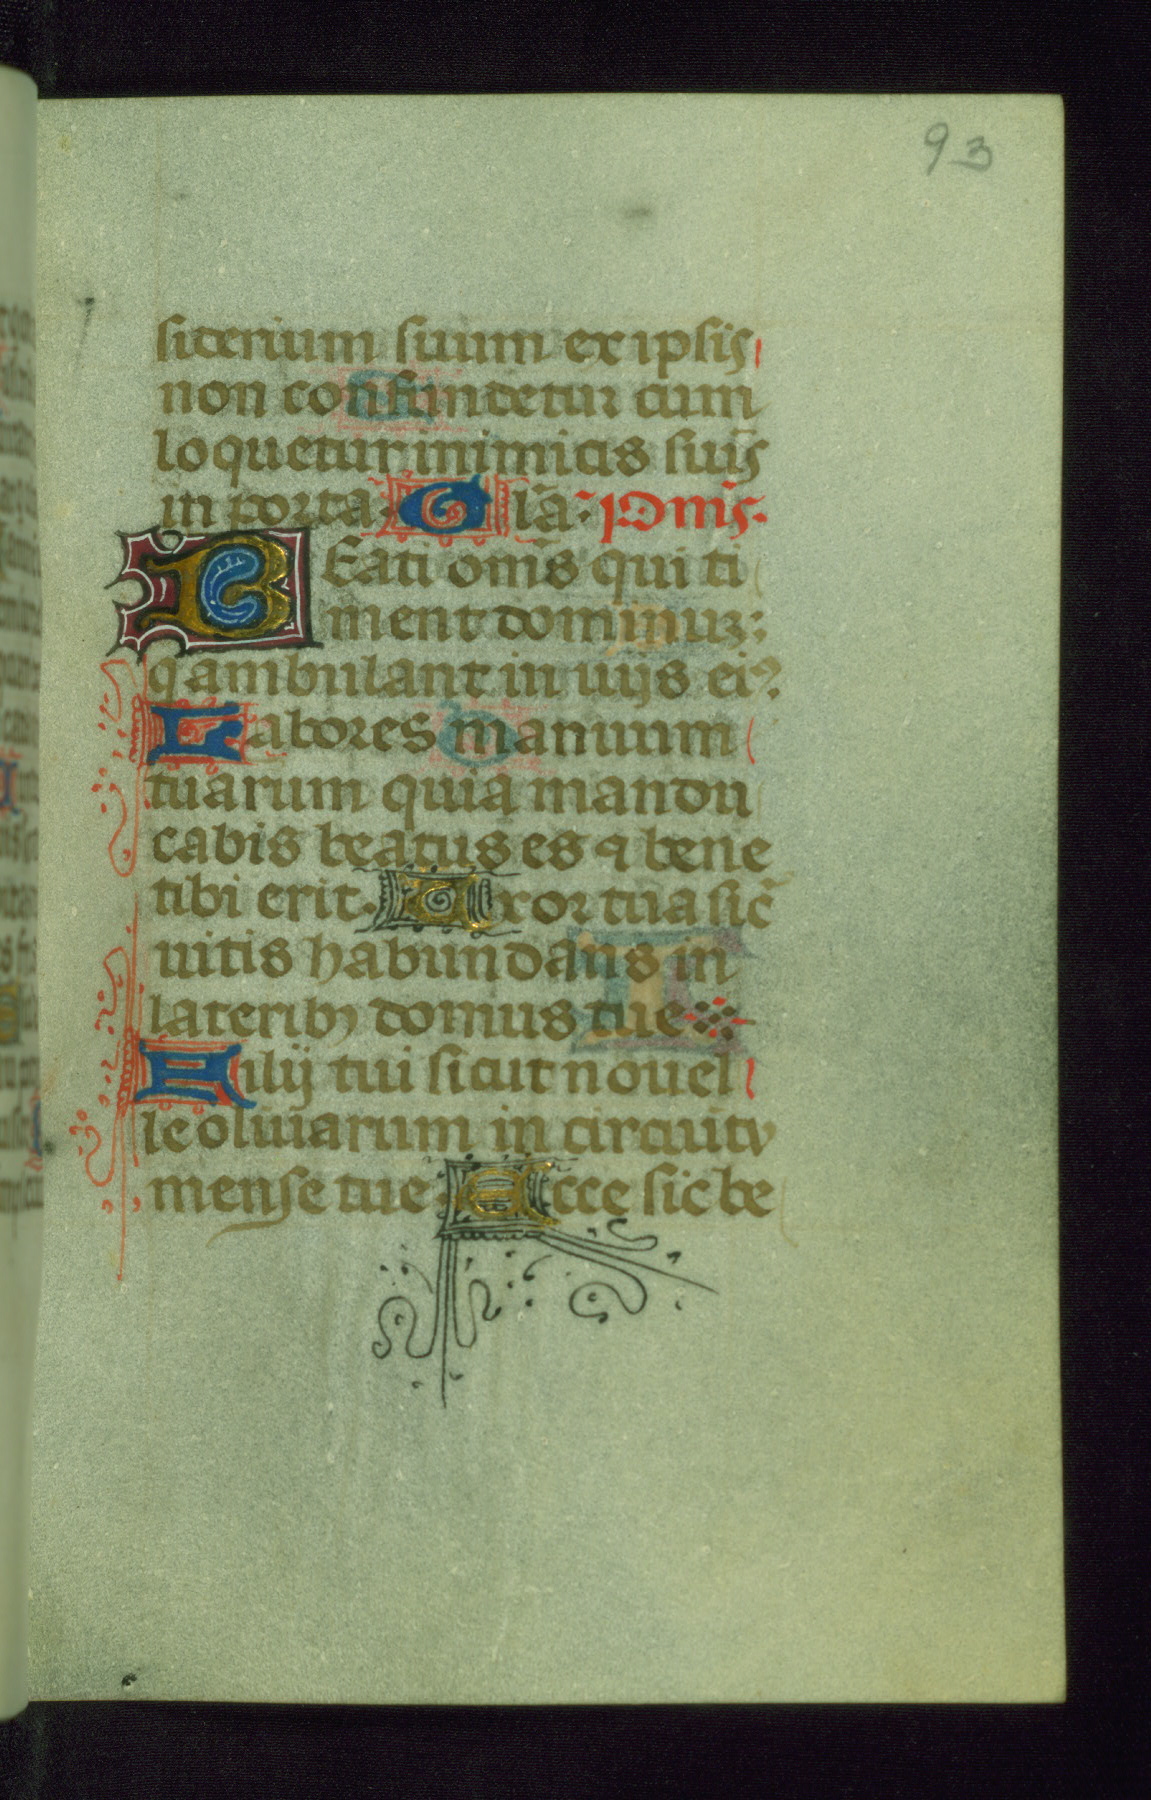 93
siderium suum ex ipsis
non confundetur cum
loquetur inimicis suis
in porta. Gla. ps.
Beati oms qui ti
ment dominuz:
q ambulant in uijs eiꝰ.
Labores manuum
tuarum quia mandu
cabis beatus es ⁊ bene
tibi erit. Uxor tua sic̃
uitis habundans in
lateribꝫ domus tue
Filij tui sicut nouel
le oliuarum in circuitu
mense tue. Ecce sic be